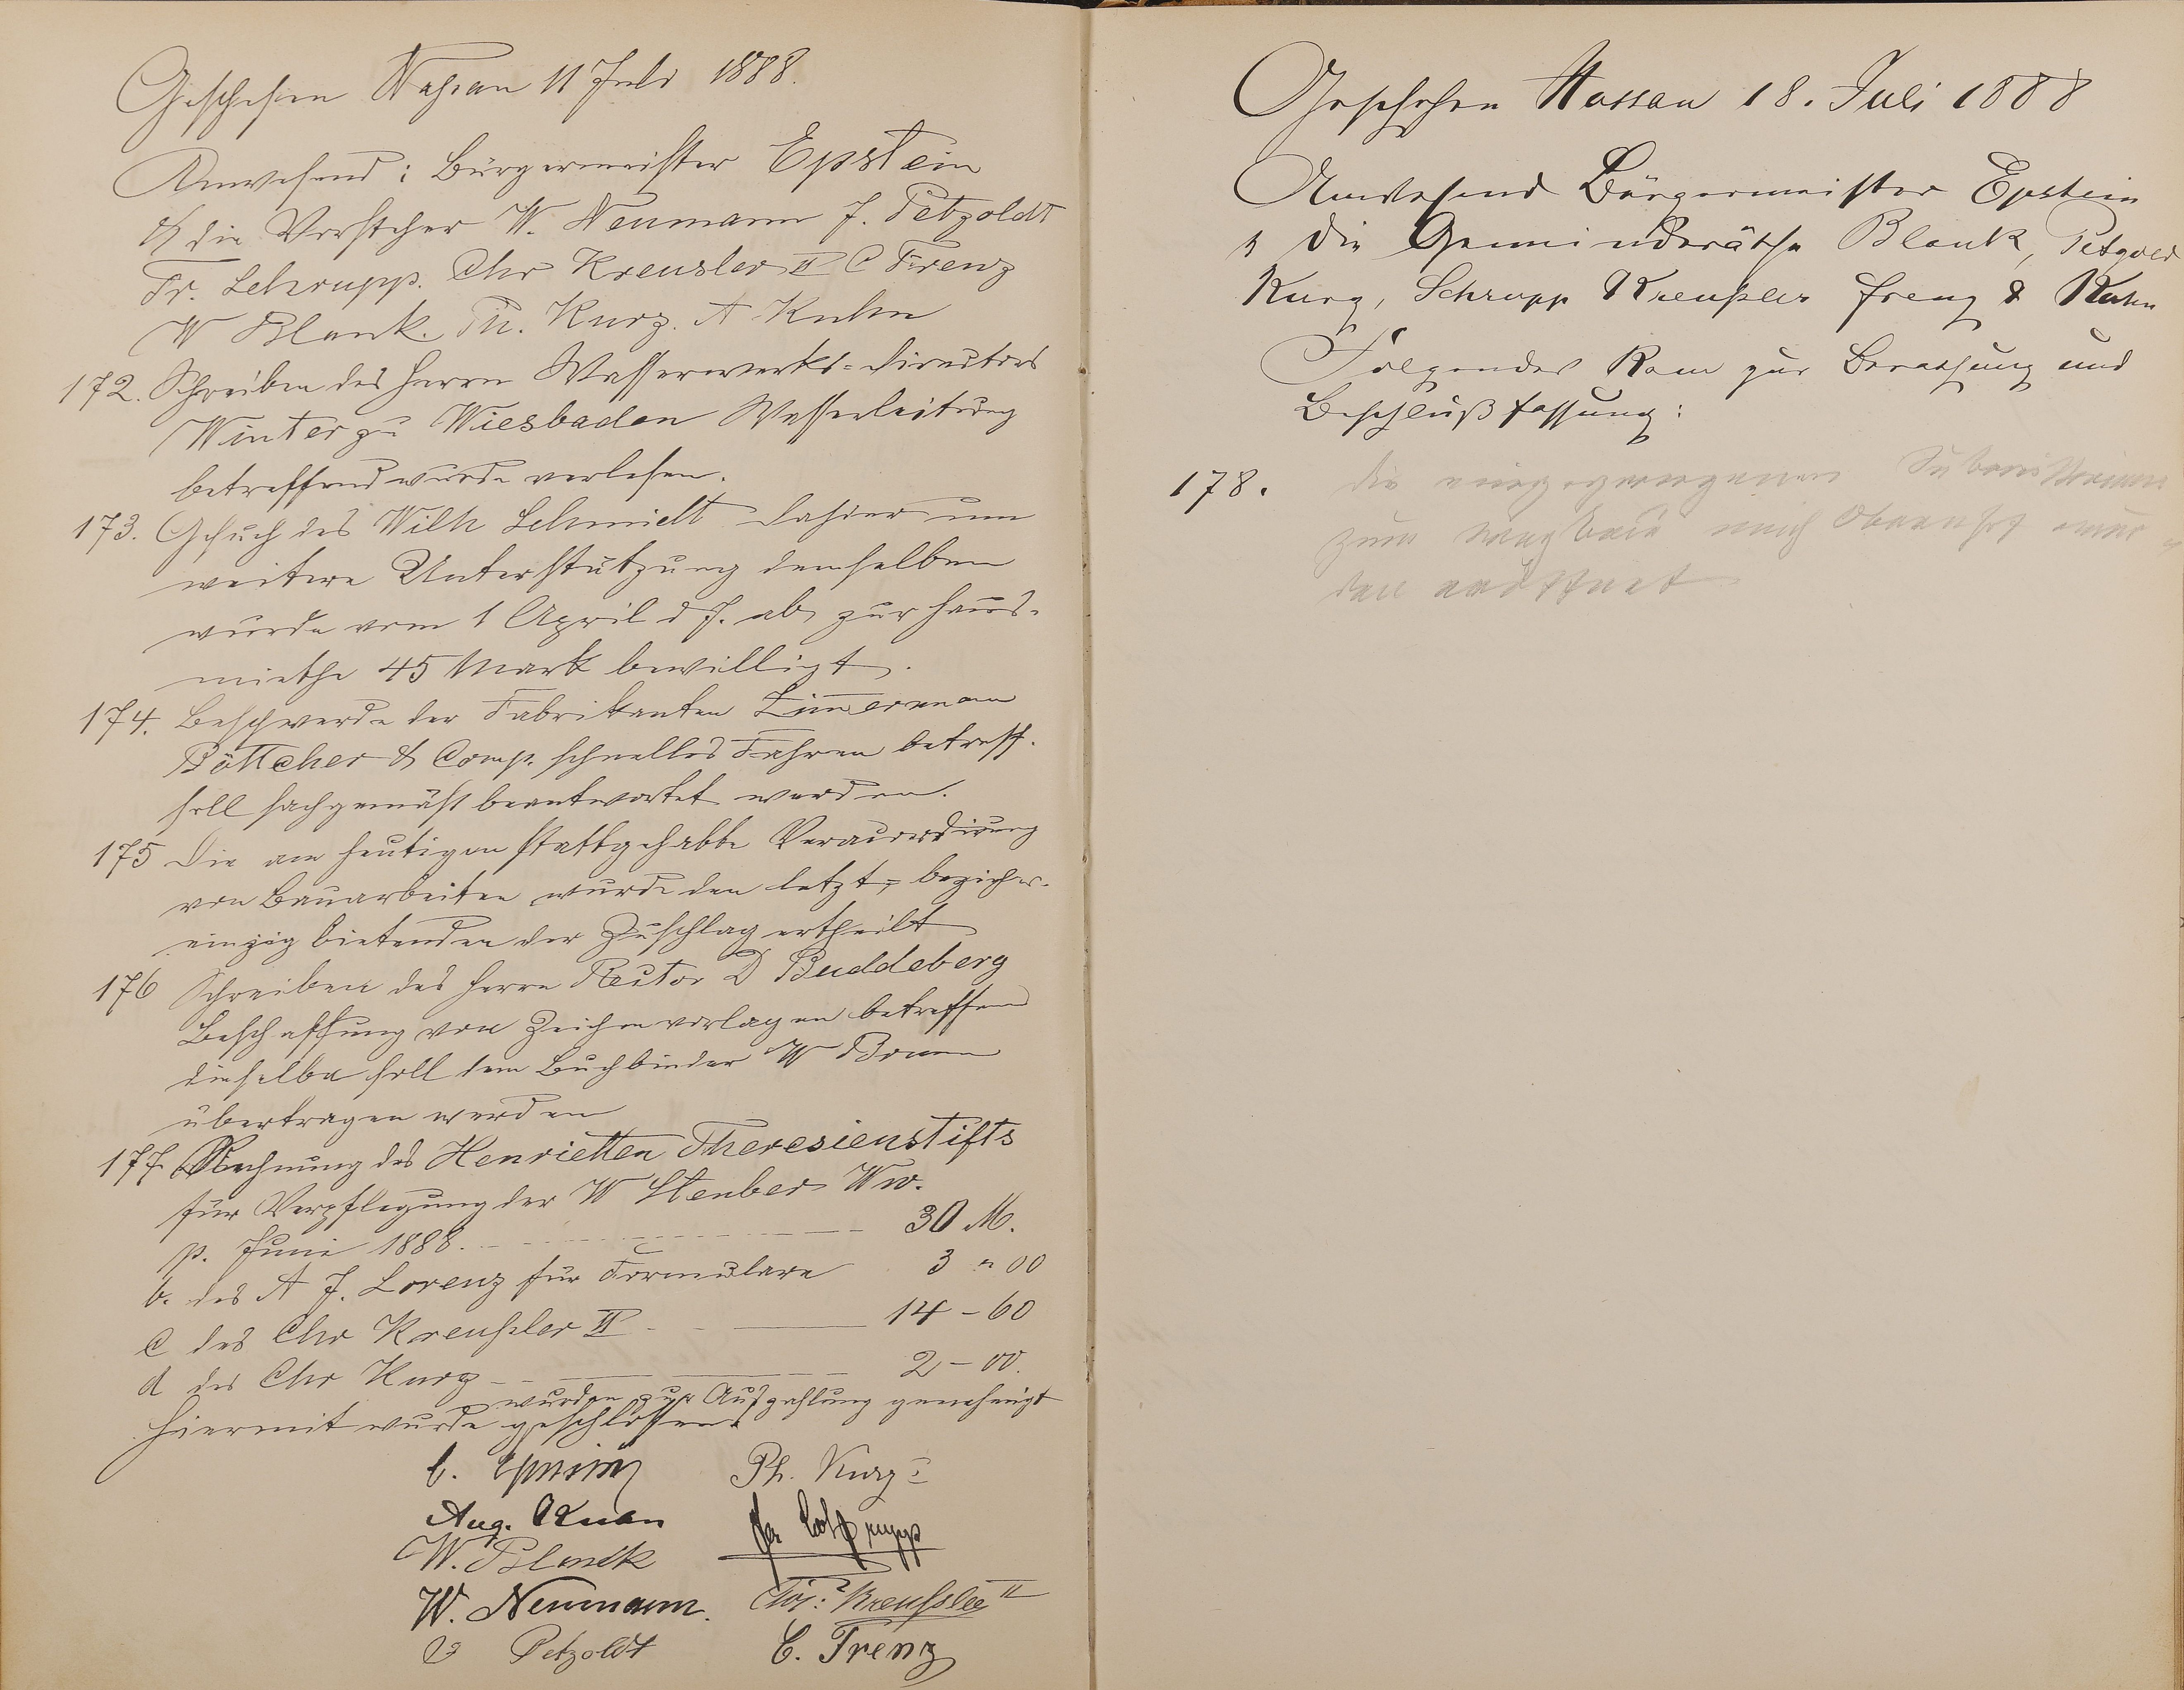 Geschehen Nassau 11 Juli 1888.
Anwesend: Bürgermeister Epstein
& die Vorsteher W. Neumann J. Petzoldt
Fr. Schrupp. Chr Kreusler II C Frenz
W Blank. Ph. Kurz. A Kuhn
172. Schreiben des Herrn Wasserwerks-Directors
Winter zu Wiesbaden Wasserleitung
betreffend wurde verlesen.
173. Gesuch des Wilh Schmidt dahier um
weitere Unterstützung demselben
wurde vom 1 April d J. ab zur Haus-
miethe 45 Mark bewilligt.
174. Beschwerde der Fabrikanten Zimmermann
Böttcher & Comp. schnelles Fahren betreff.
soll sachgemäß beantwortet werden.
175 Die am heutigen stattgehabte Veraccordirung
von Bauarbeiten wurde den letzt- beziehw.
einzig bietenden der Zuschlag ertheilt
176 Schreiben des Herrn Rector D Buddeberg
Beschaffung von Zeichenvorlagen betreffend
dieselbe soll dem Buchbinder W
übertragen werden
177. Rechnung des Henrietten Theresienstifts
für Verpflegung der W Steuber Ww.
p. Juni 1888. 30 M.
b. des A J. Lorenz für Formulare 3 " 00
c des Chr Kreußler II 14 - 60
d des Chr Kurz 2 - 00.
wurden zur Auszahlung genehmigt
Hiermit wurde geschlossen.
C. Epstein Ph. Kurz I
Aug. Kuhn Fr Schrupp
W. Blank
W. Neumann. Chr: Kreußler II
Petzoldt C. Frenz
Geschehen Nassau 18. Juli 1888
Anwesend Bürgermeister Epstein
& die Gemeinderäthe Blank, Petzold
Kurz, Schrupp Kreußler Frenz & Kuhn
Folgendes Kam zur Berathung und
Beschlußfassung:
178. die eingegangenen Submissionen
zum Wegbau nach Obernhof wur-
den eröffnet